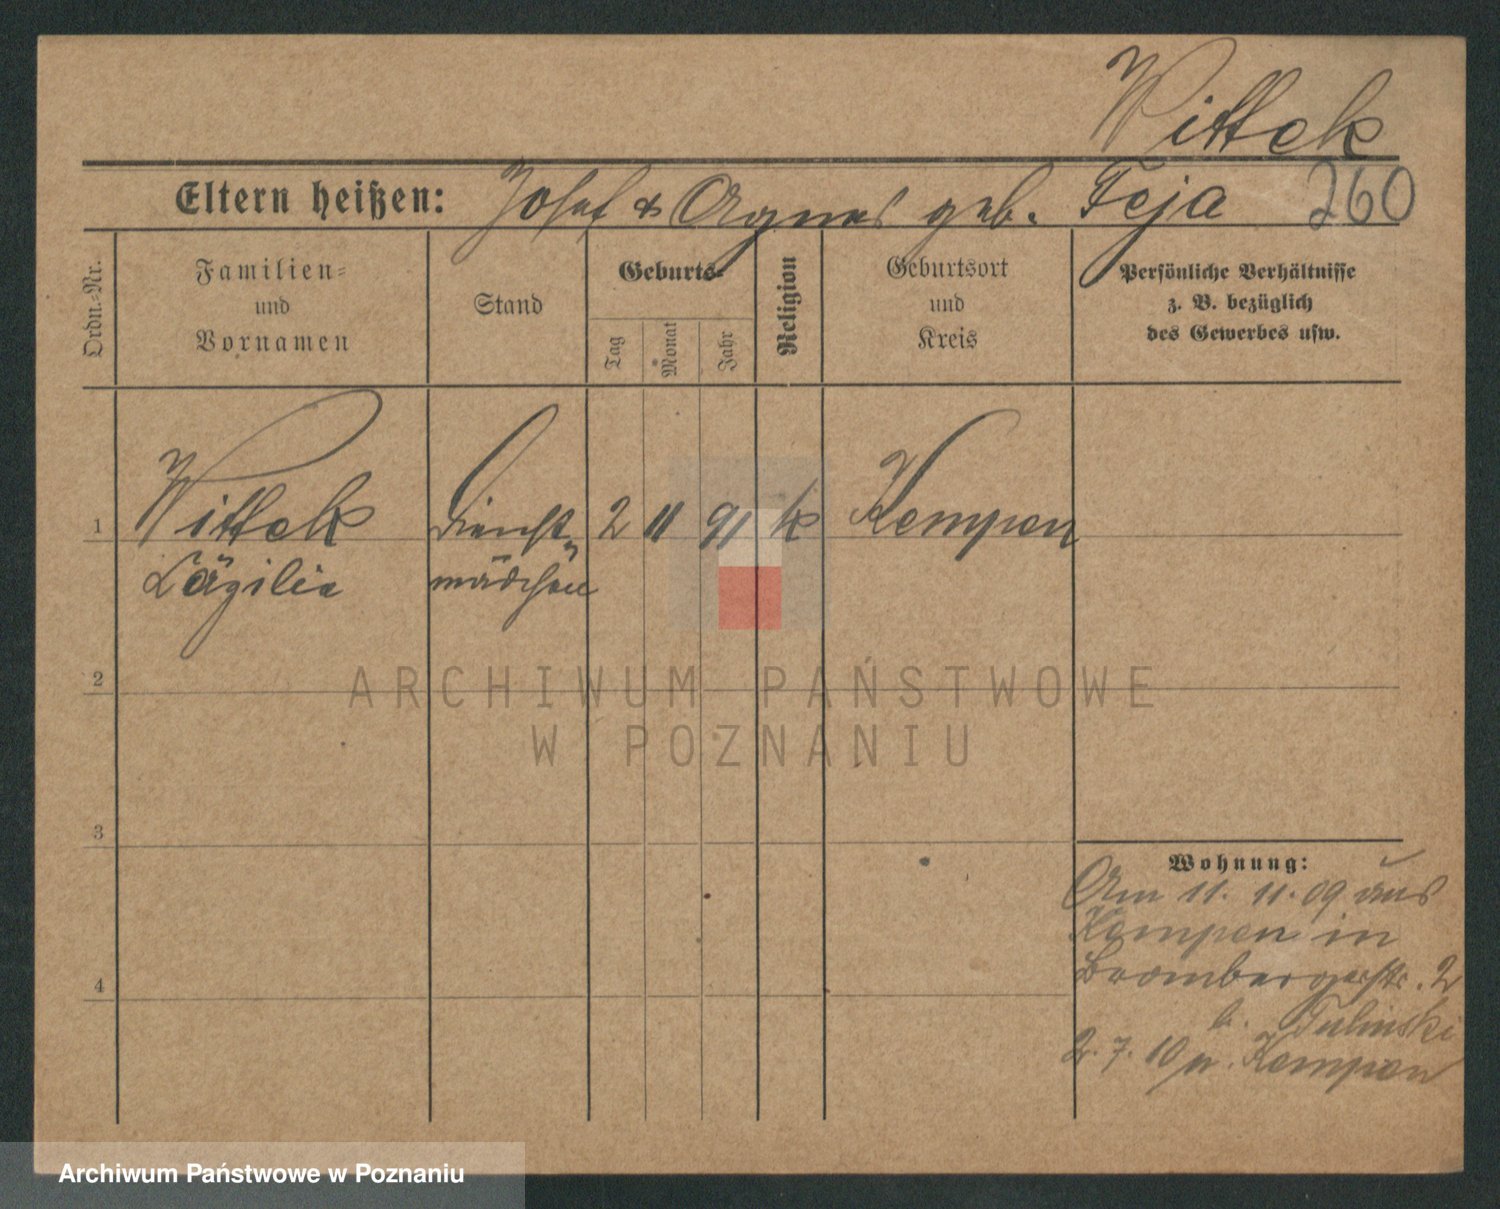 Wittek
Eltern heißen: Josef & Agnes geb. Feja 260
Ordn.=Nr.
Familien=
und
Vornamen
Stand
Geburts=
Tag
Monat
Jahr
Religion
Geburtsort
und
Kreis
Persönliche Verhältnisse
z. B. bezüglich
des Gewerbes usw.
1 Wittek Dienst= 2 11 91 k Kempen
Cäzilie mädchen
2
ARCHIWUM PAŃSTWOWE
W POZNANIU
3
Wohnung:
Am 11. 11. 09 aus
Kempen in
Brombergerstr. 2
b. Tulinski
4
2. 7. 10 n. Kempen
Archiwum Państwowe w Poznaniu